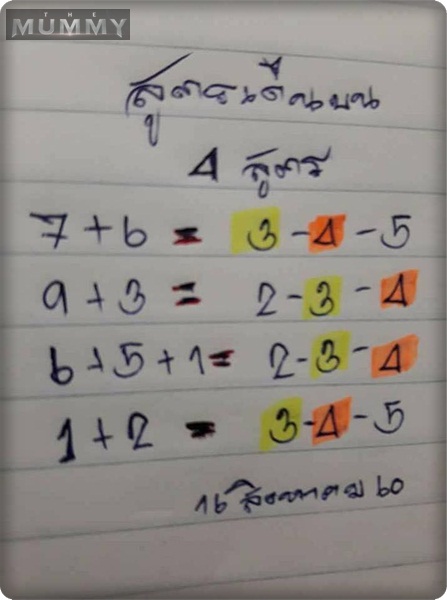 THE
MUMMY
สูตรเดือนบน
4 สูตร
7+6 = 3-4-5
9+3 = 2-3-4
6+5+1= 2-3-4
1+2 = 3-4-5
16 สิงหาคม 60